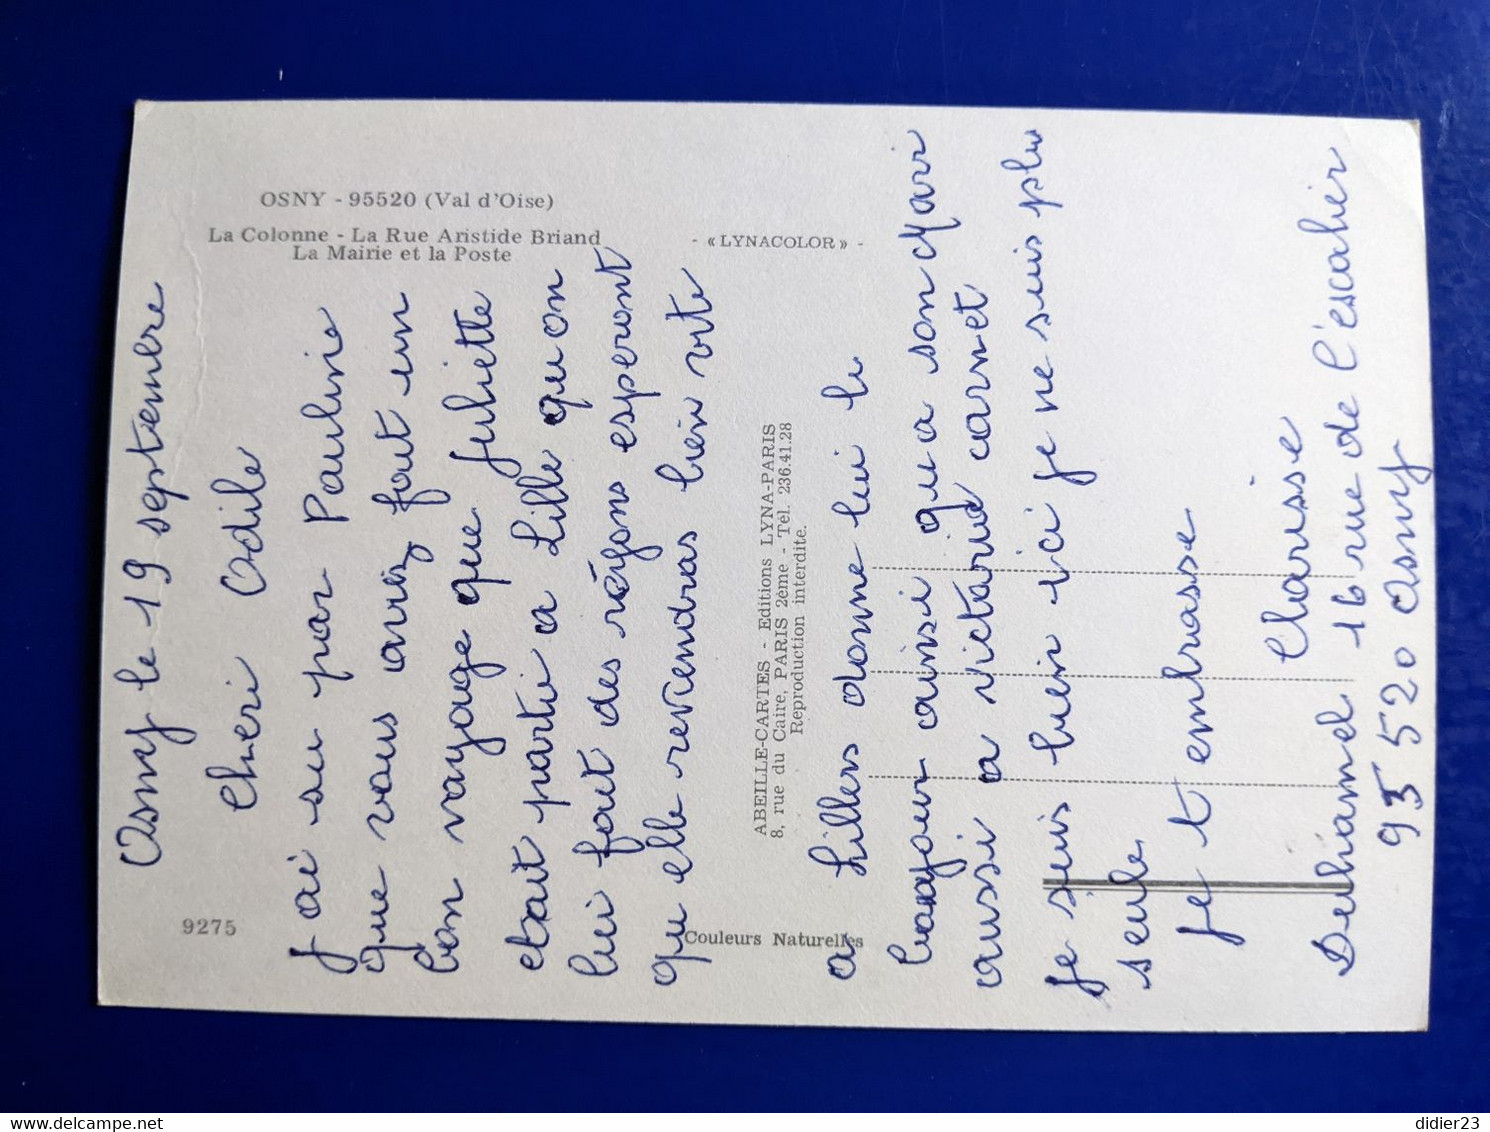 OSNY - 95520 (Val d'Oise)
La Colonne - La Rue Aristide Briand
La Mairie et la Poste
- « LYNACOLOR » -
9275
Couleurs Naturelles
ABEILLE-CARTES - Editions LYNA-PARIS
8, rue du Caire, PARIS 2ème - Tél. 236.41.28
Reproduction interdite.
Osny le 19 septembre
cheri Odile
J ai su par Pauline
que vous aviez fait un
bon voyage que Juliette
etait partie a Lille qu on
lui fait des réyons esperont
qu elle reviendras bien vite
a Lillers donne lui le
bonjour ainsi qu a son Mari
aussi a victorine carnet
Je suis bien ici je ne suis plu
seule
Je t embrasse
Clarisse
Deuhamel 16 rue de l'escalier
95 520 Osny
didier23